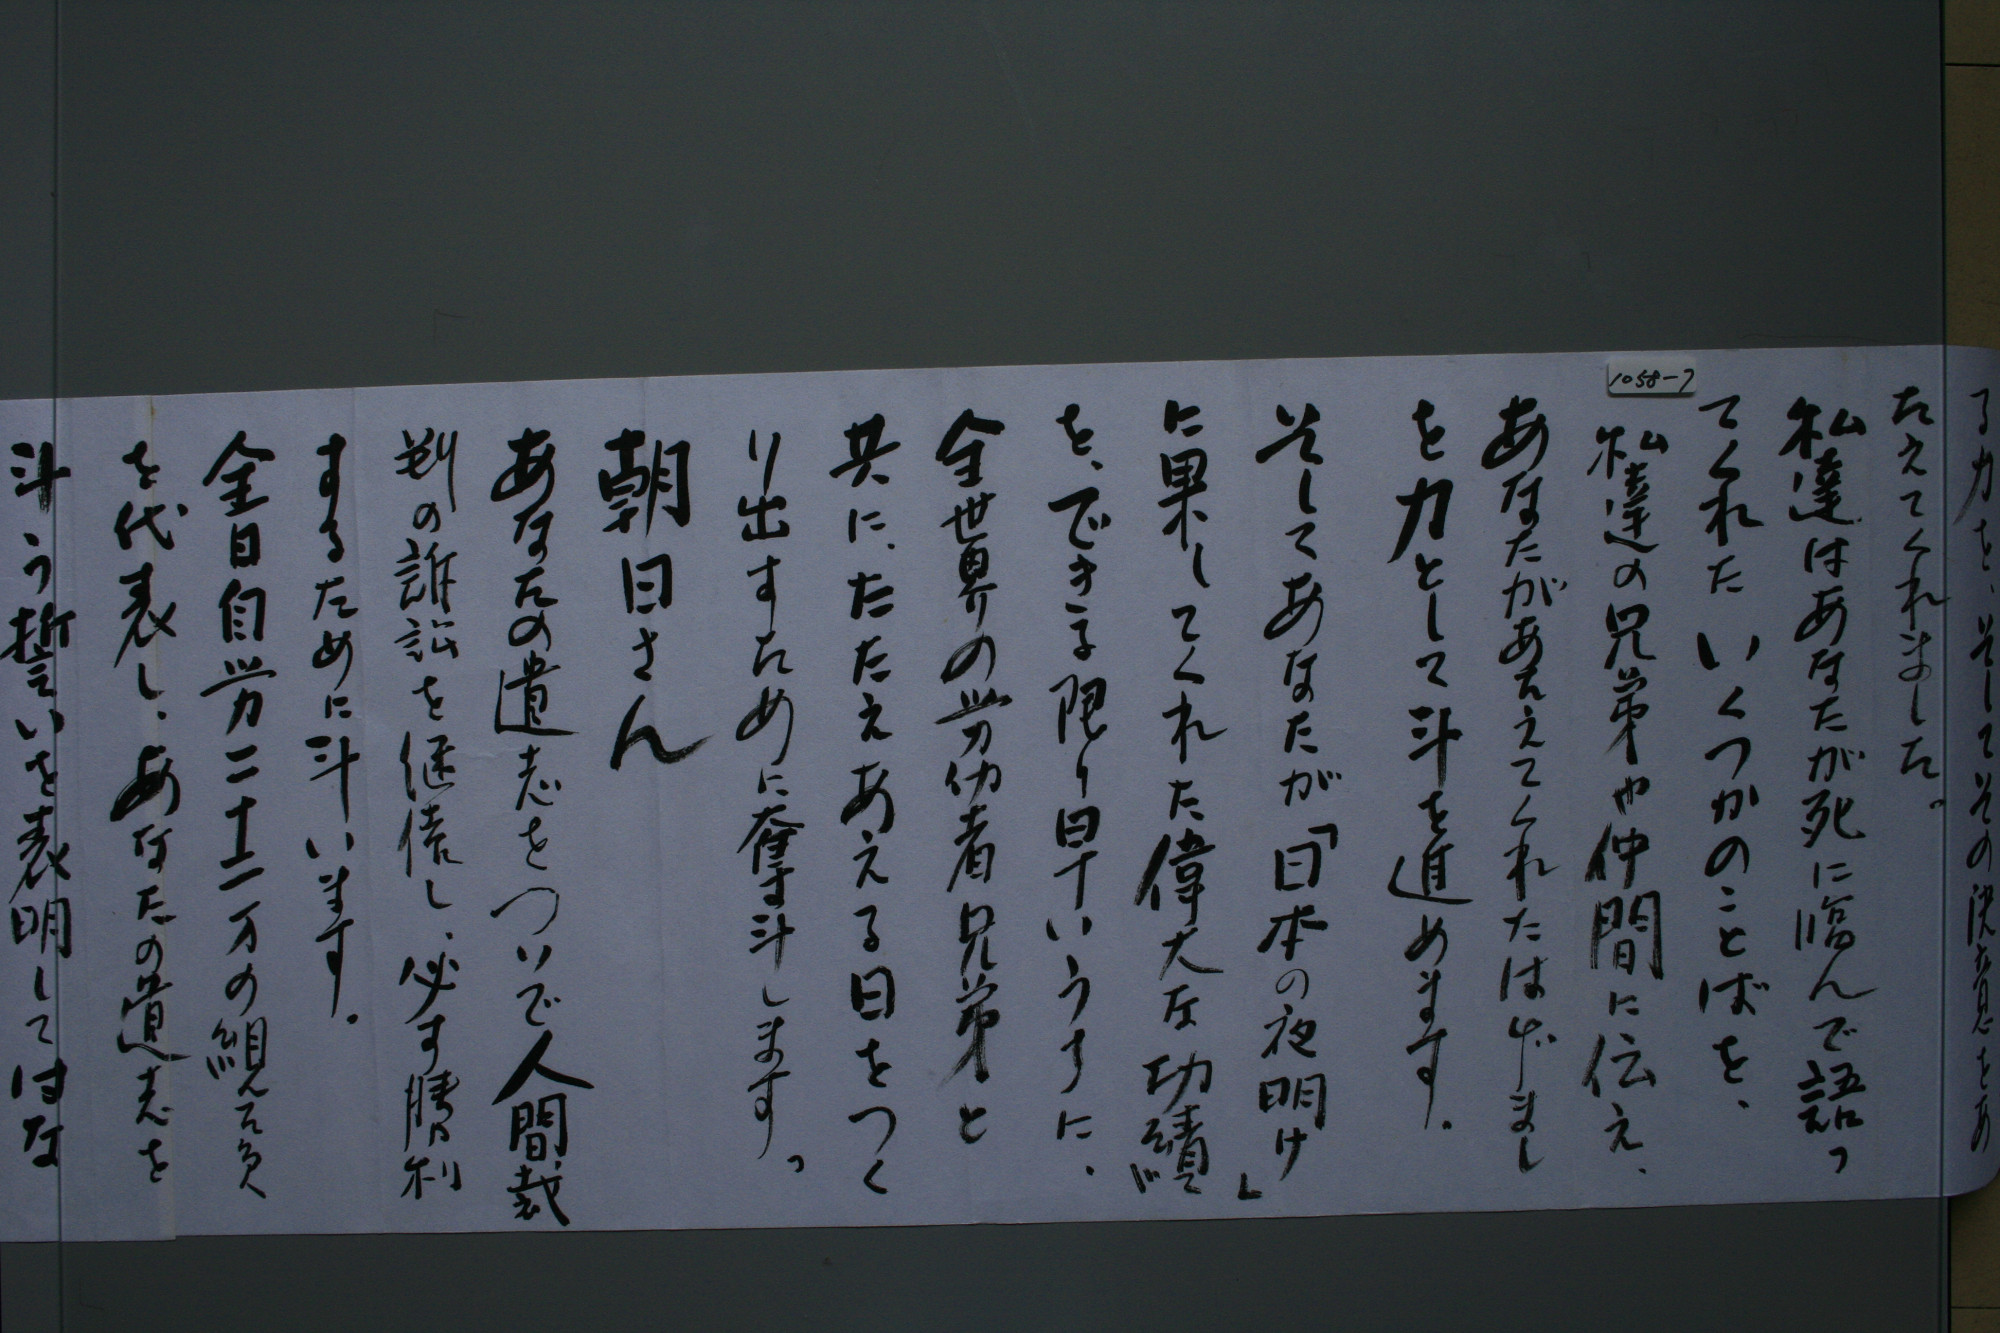 る力を、そしてその決意をあ
たえてくれました。
私達はあなたが死に臨んで語っ
てくれたいくつかのことばを、
私達の兄弟や仲間に伝え、
あなたがあたえてくれたはげまし
を力として斗を進めます。
そしてあなたが「日本の夜明け」
に果してくれた偉大な功績
を、できる限り早いうちに、
全世界の労仂者兄弟と
共に、たたえあえる日をつく
り出すために奮斗します。
朝日さん
あなたの遺志をついで人間裁
判の訴訟を継続し、必ず勝利
するために斗います。
全日自労二十二万の組合員
を代表し、あなたの遺志を
斗う誓いを表明してはな
1058-7